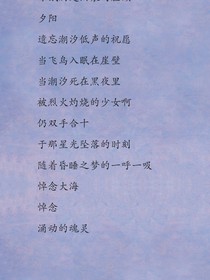 夕阳
遗忘潮汐低声的祝愿
当飞鸟入眠在崖壁
当潮汐死在黑夜里
被烈火灼烧的少女啊
仍双手合十
于那星光坠落的时刻
随着昏睡之梦的一呼一吸
悼念大海
悼念
涌动的魂灵